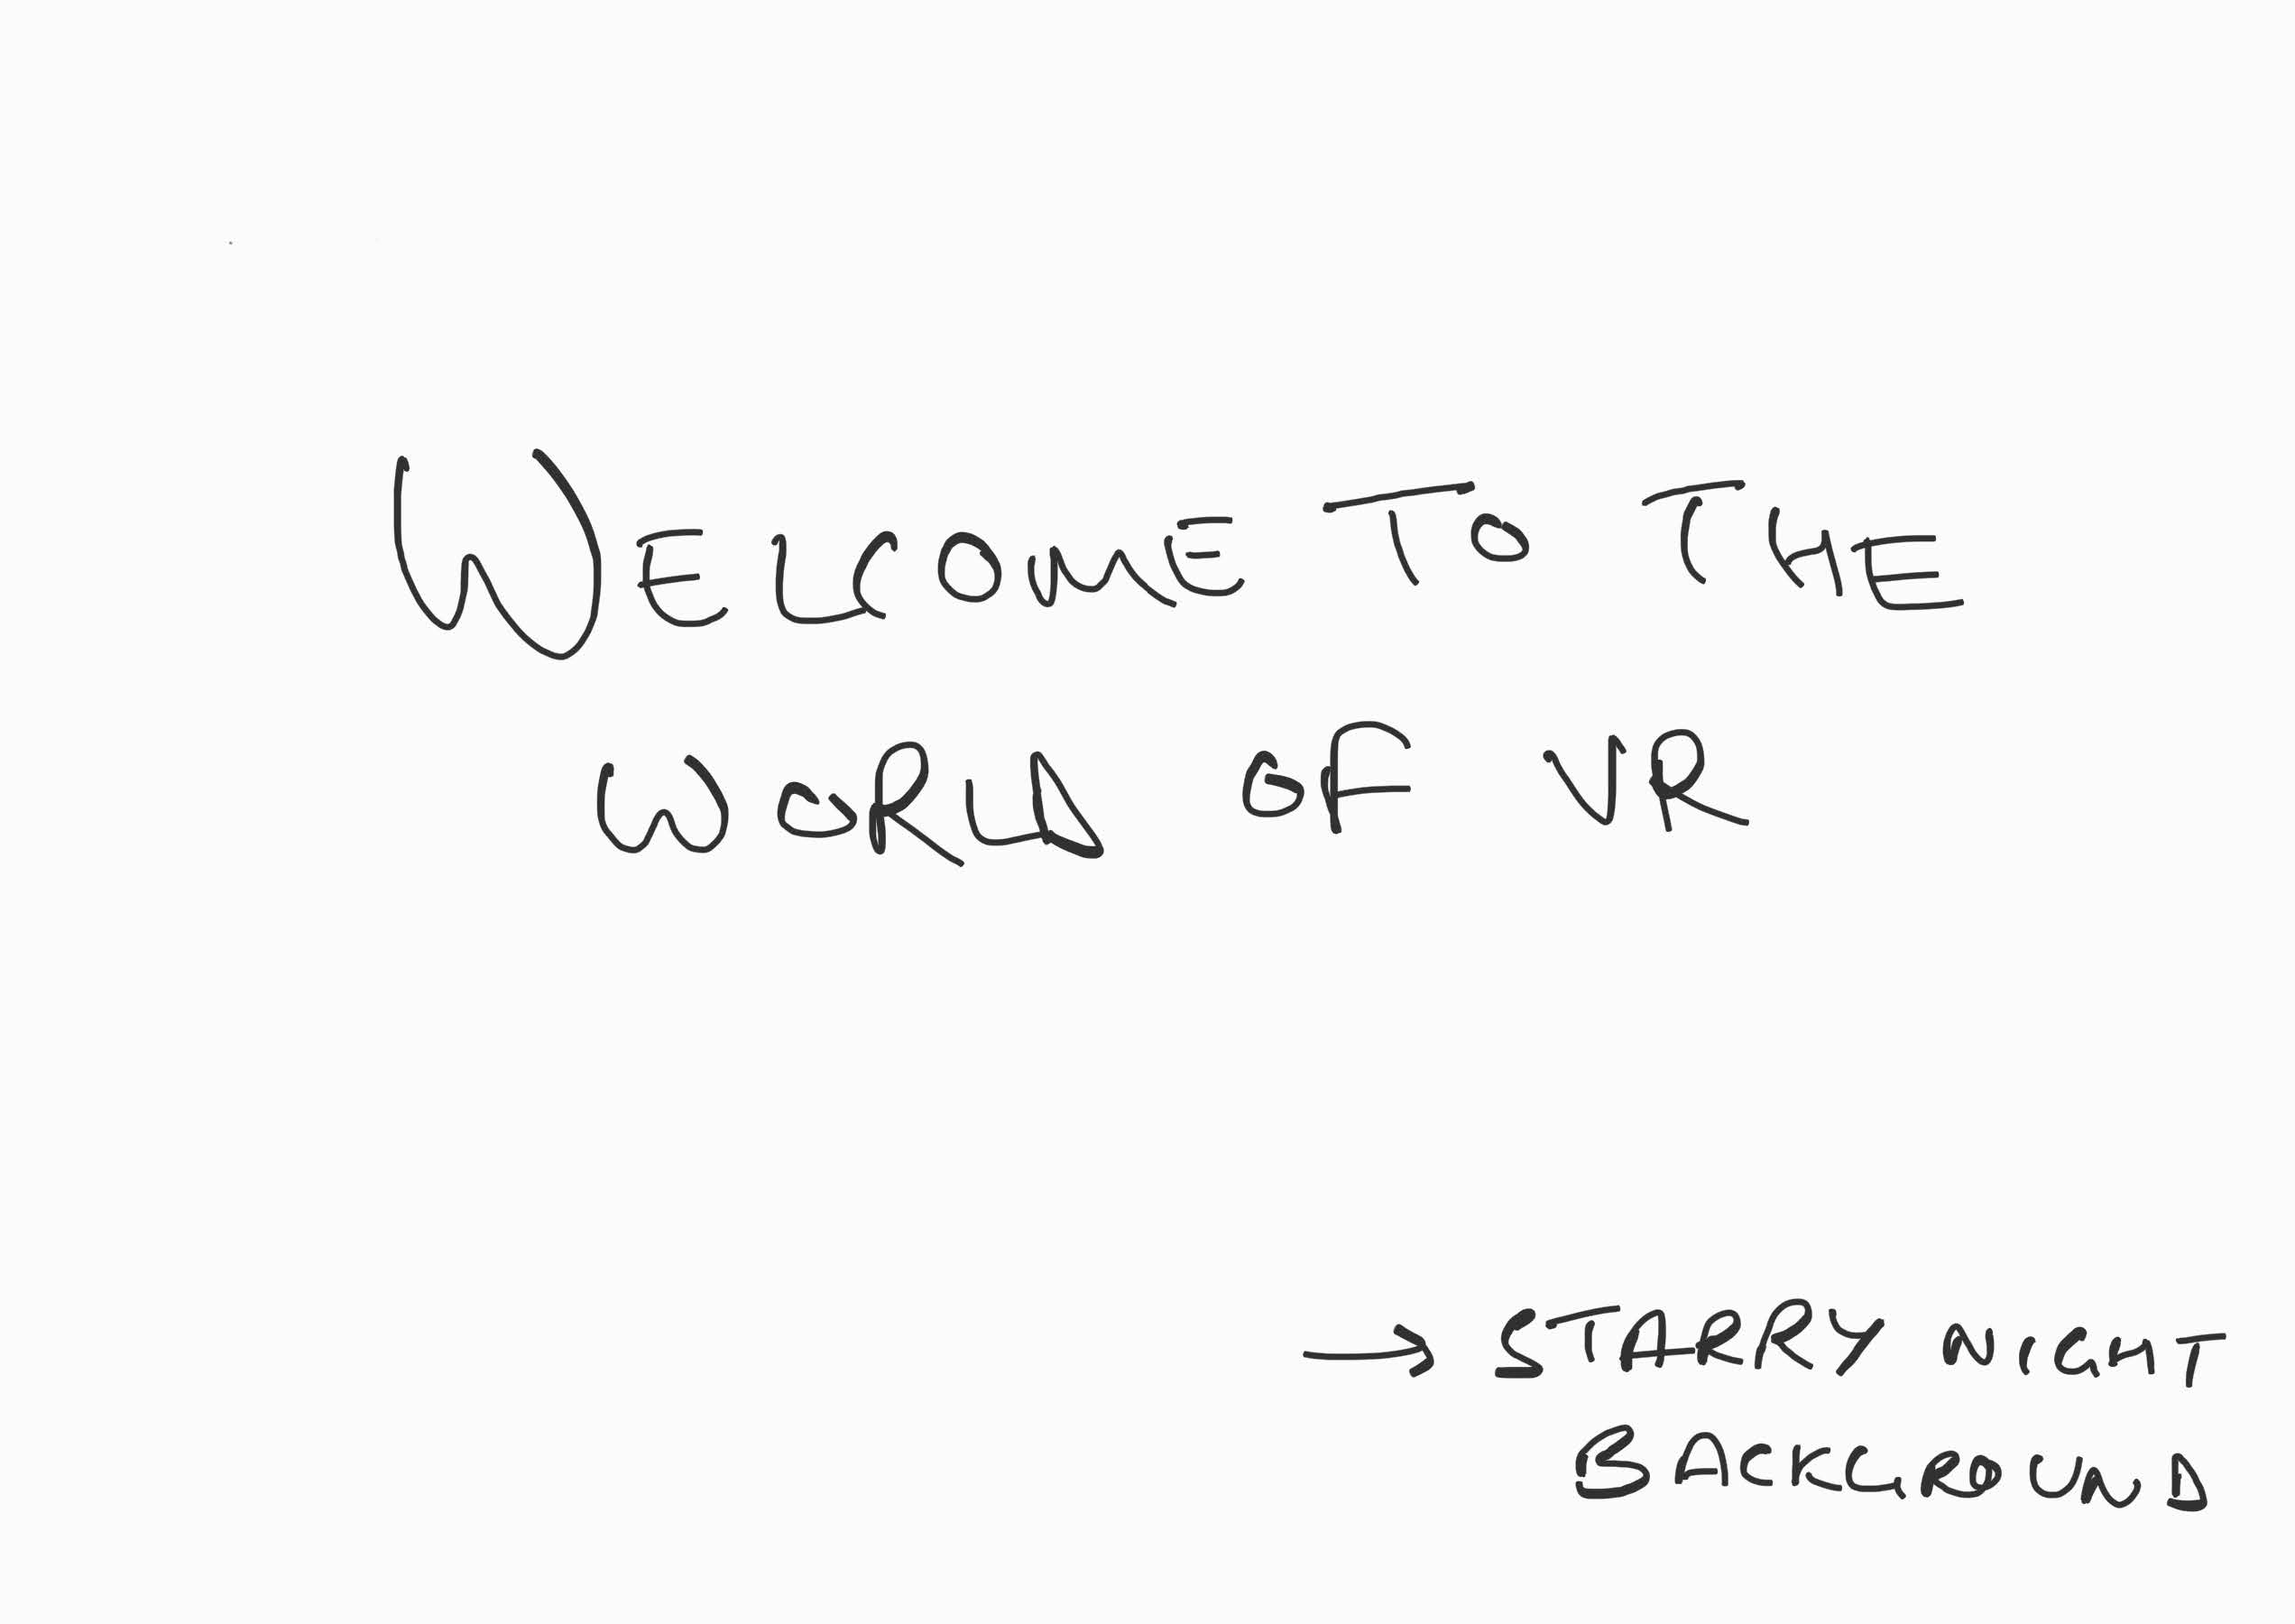 WELCOME TO THE
WORLD OF VR
→ STARRY NIGHT
BACKGROUND